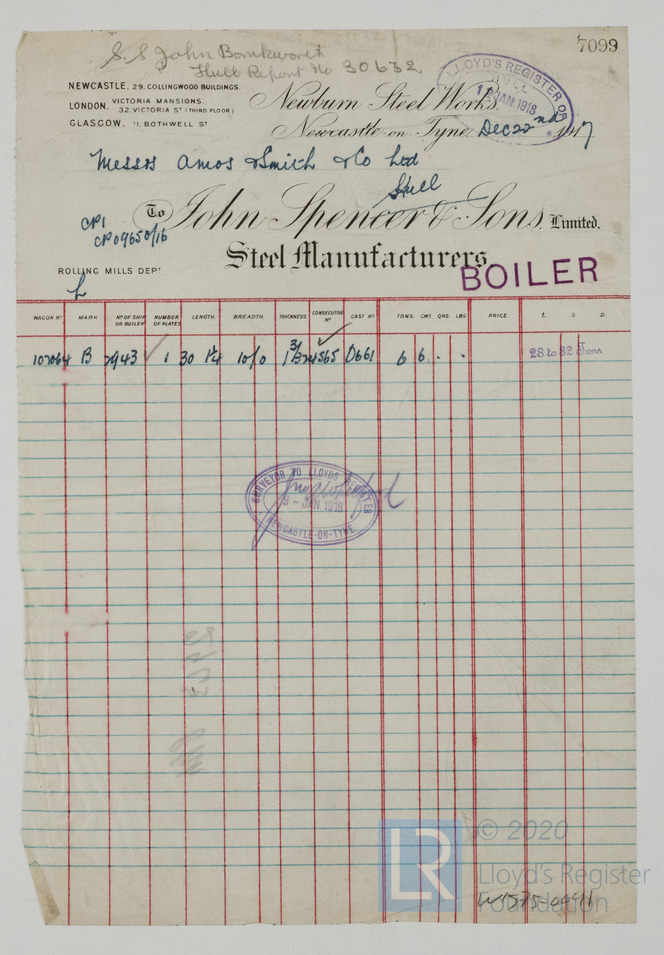 7099
S.S John Bomkworet
Hull Report No 30632.
NEWCASTLE, 29. COLLINGWOOD BUILDINGS.
LONDON, VICTORIA MANSIONS.
32, VICTORIA ST (THIRD FLOOR)
GLASGOW, 11, BOTHWELL ST
LLOYD'S REGISTER OF
JAN 1918
Newburn Steel Works,
Newcastle-on-Tyne, Dec 22nd 1917
Messrs Amos & Smith & Co Ltd
Hull
CP1
CP09650/16
To John Spencer & Sons, Limited.
Steel Manufacturers
ROLLING MILLS DEPT
BOILER
WAGON No MARK No OF SHIP OR BOILER NUMBER OF PLATES LENGTH. BREADTH. THICKNESS CONSECUTIVE No CAST No TONS. CWT QRS. LBS. PRICE. £. S. D.
B 1 30 10/0 D661 6 6 . . 28 to 32 Tons
SURVEYOR TO LLOYDS REGISTER
JAN 1918
NEWCASTLE-ON-TYNE
LR
© 2020
Lloyd's Register
Foundation
W1575-0041